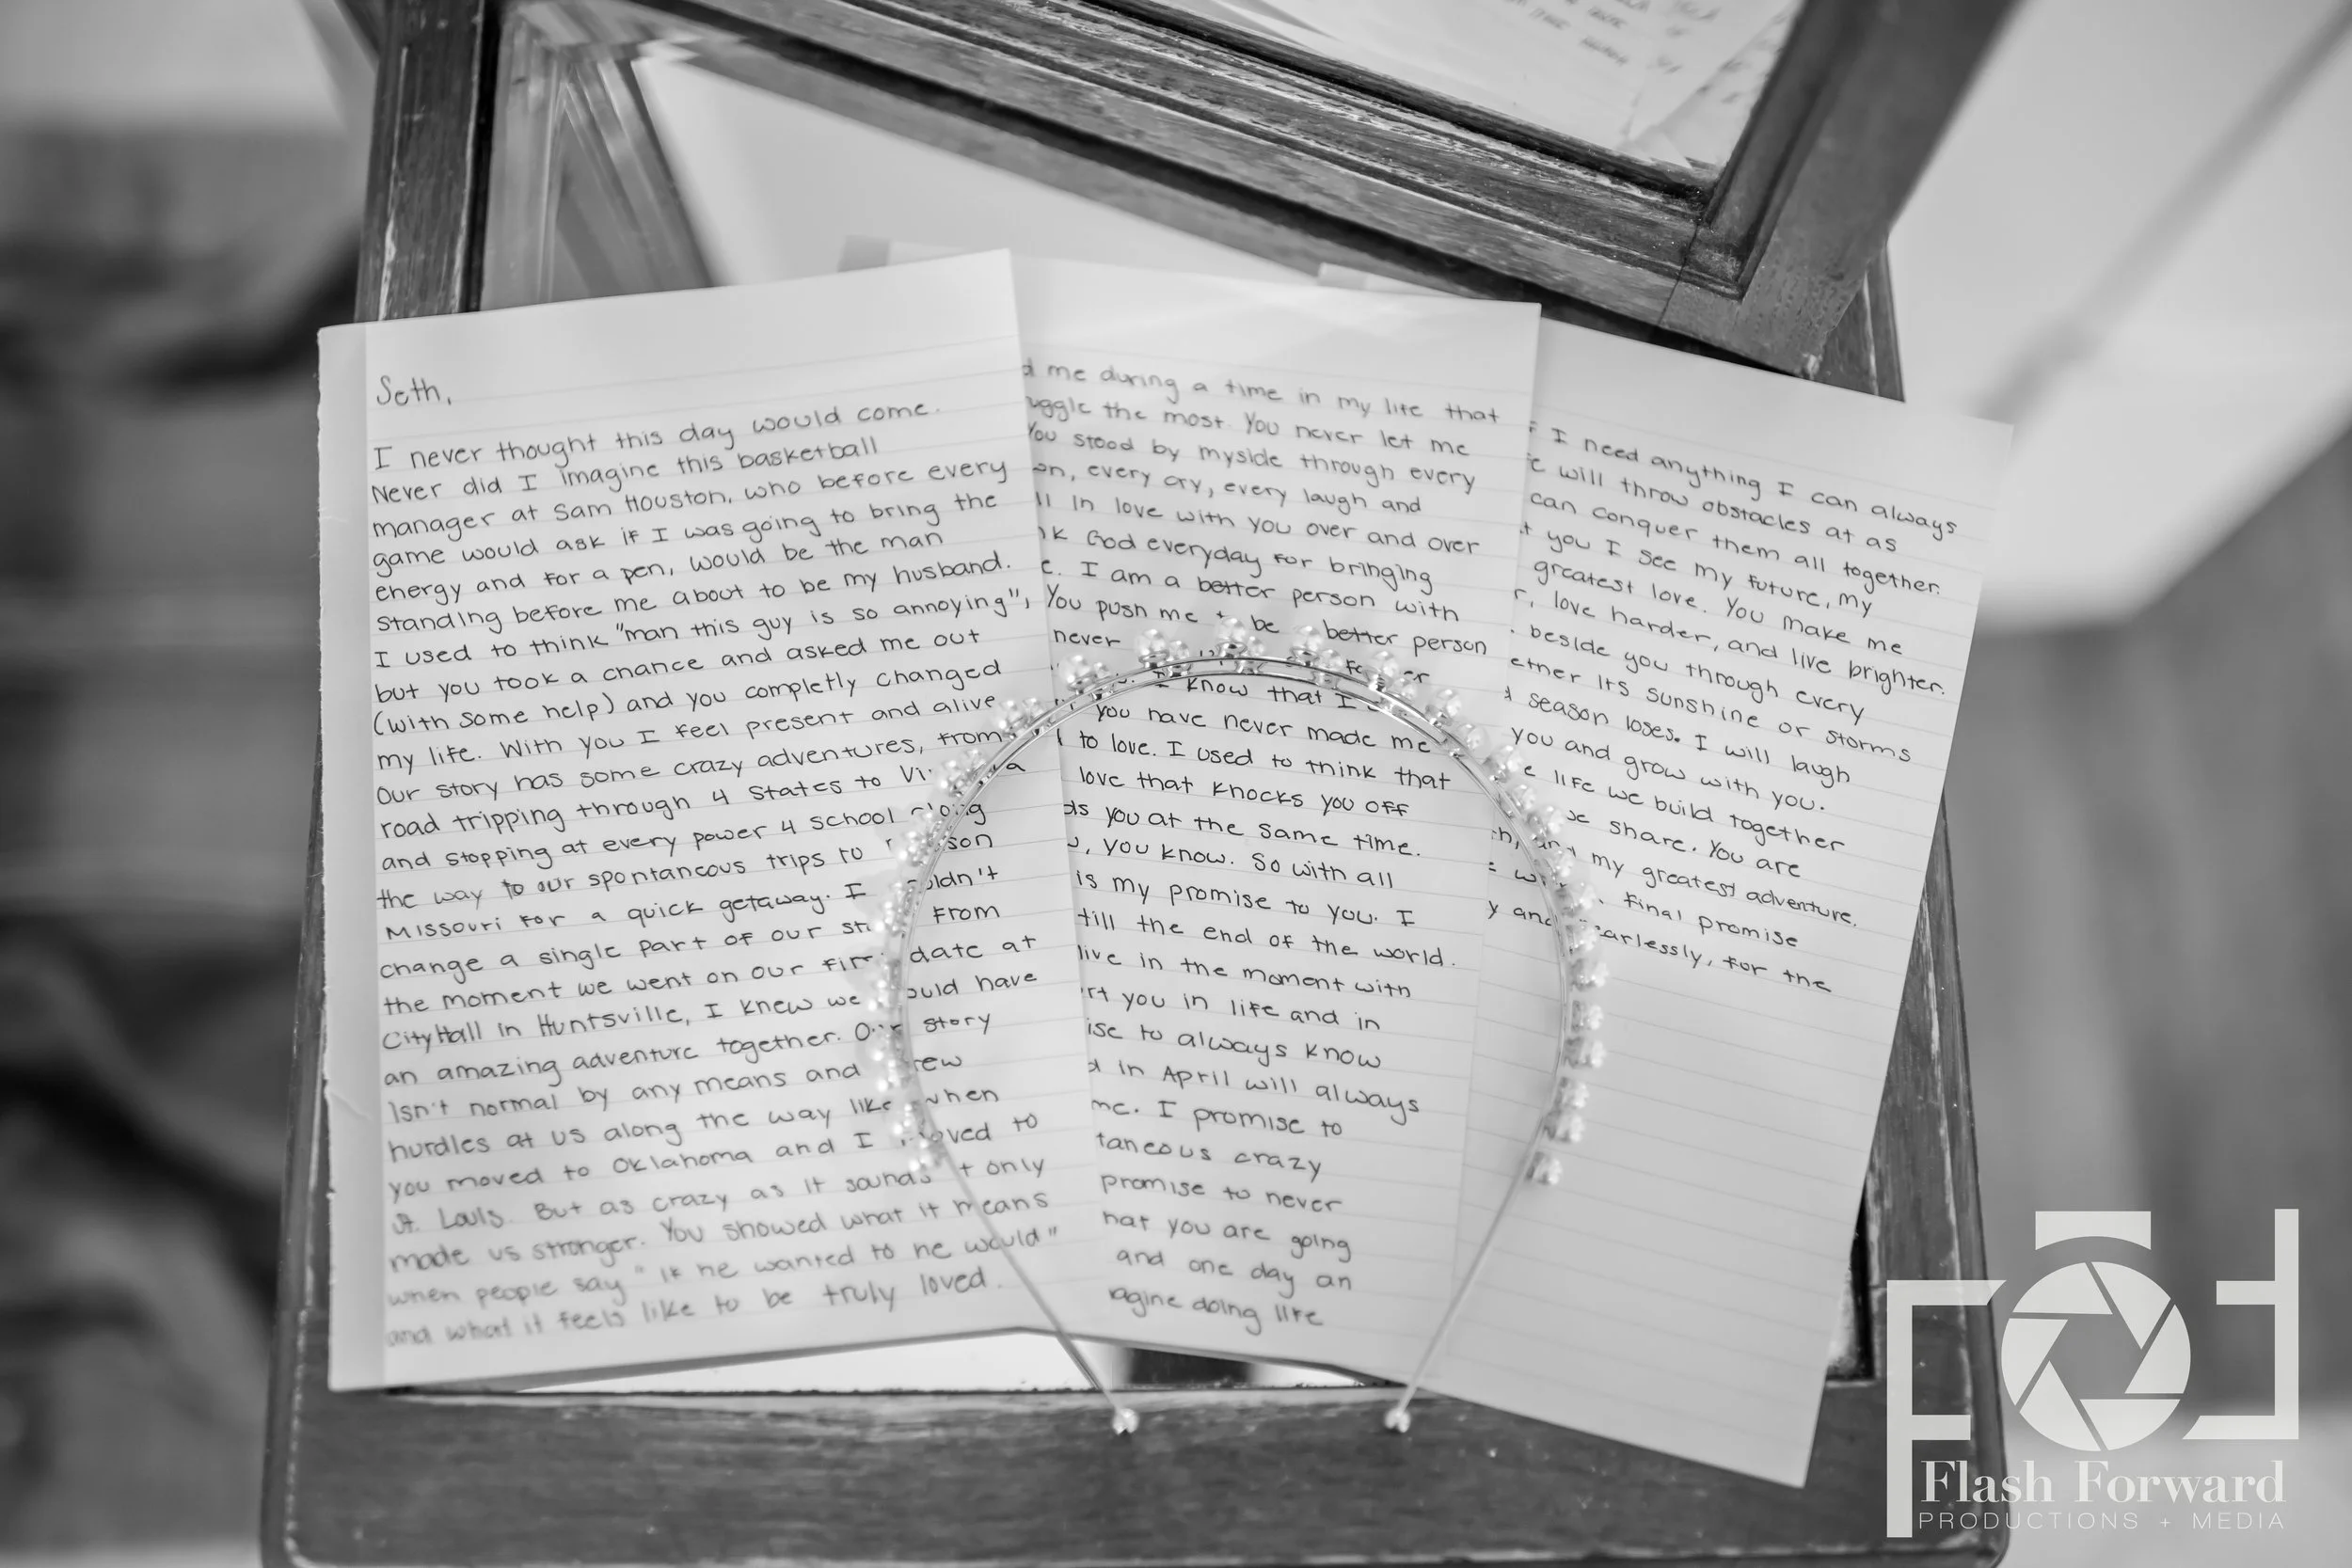 Seth,
I never thought this day would come.
Never did I imagine this basketball
manager at Sam Houston, who before every
game would ask if I was going to bring the
energy and for a pen, would be the man
standing before me about to be my husband.
I used to think "man this guy is so annoying",
but you took a chance and asked me out
(with some help) and you completly changed
my life. With you I feel present and alive
Our story has some crazy adventures, from
road tripping through 4 states to
and stopping at every power 4 school along
the way to our spontaneous trips to
Missouri for a quick getaway. I
change a single part of our from
the moment we went on our date at
City Hall in Huntsville, I knew we have
an amazing adventure together. story
Isn't normal by any means and
hurdles at us along the way like when
you moved to Oklahoma and I to
St. Louis. But as crazy as it sounds only
made us stronger. You showed what it means
when people say "if he wanted to he would"
and what it feels like to be truly loved.
me during a time in my life that
the most. You never let me
You stood by myside through every
every cry, every laugh and
in love with you over and over
God everyday for bringing
I am a better person with
You push me be better person
never
I know that I
you have never made me
to love. I used to think that
love that knocks you off
you at the same time.
you know. So with all
is my promise to you. I
till the end of the world.
live in the moment with
you in life and in
to always know
in April will always
I promise to
crazy
promise to never
you are going
and one day an
doing life
I need anything I can always
will throw obstacles at as
can conquer them all together.
you I see my future, my
greatest love. You make me
love harder, and live brighter.
beside you through every
its sunshine or storms
season loses. I will laugh
you and grow with you.
life we build together
share. You are
my greatest adventure.
final promise
for the
Flash Forward
PRODUCTIONS + MEDIA